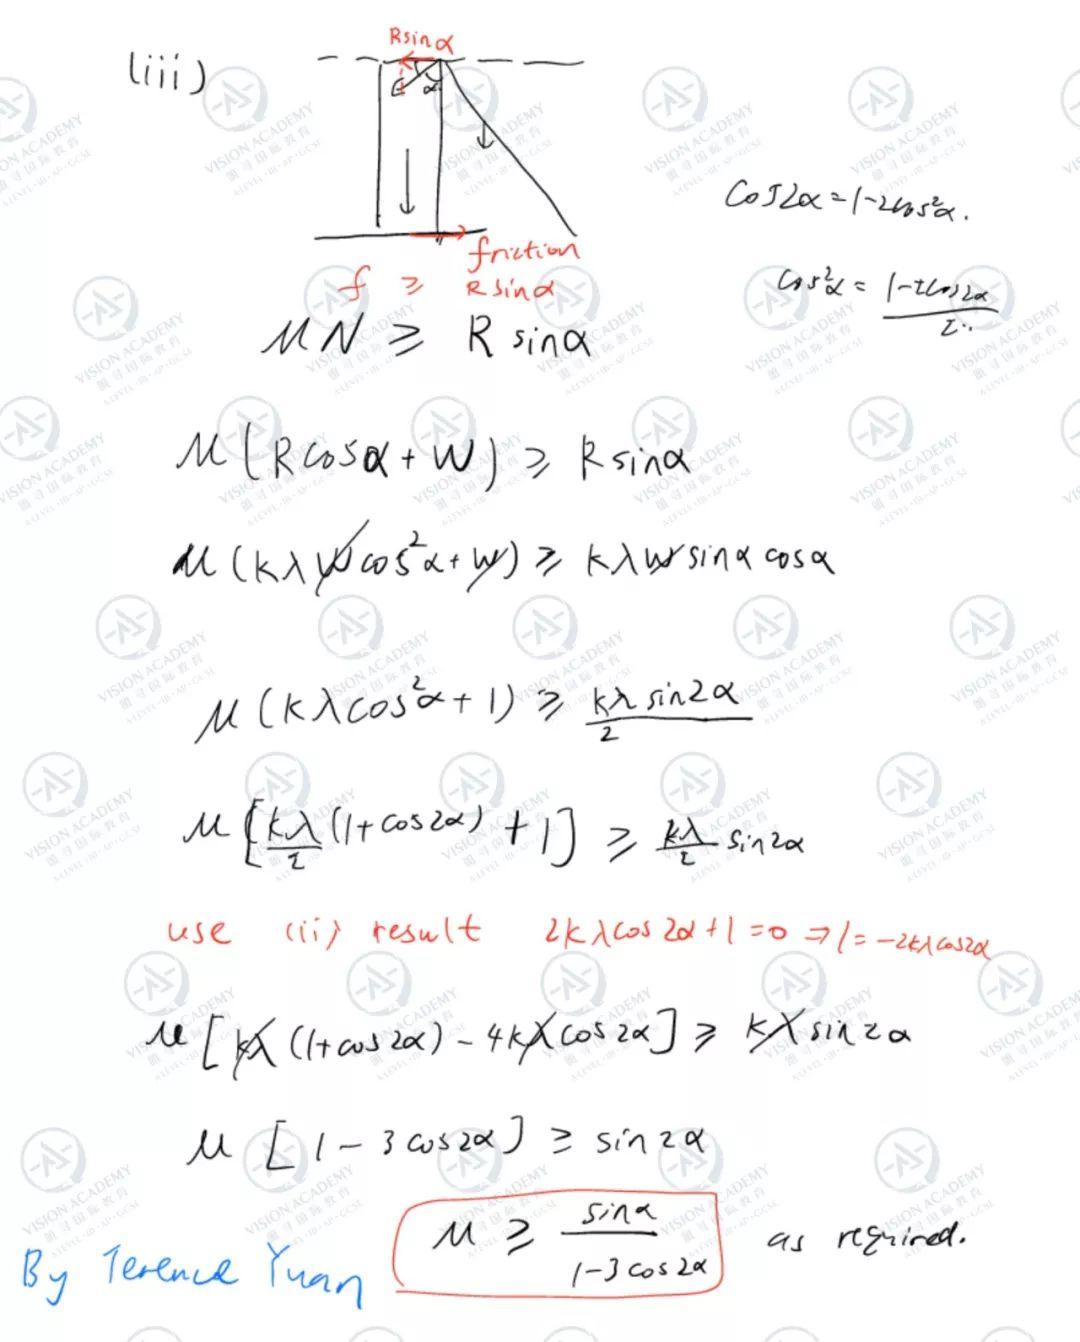 (iii)
R sin α
α
friction
f ≥ R sin α
cos2α = 1-2cos²α.
cos²α =
μN ≥ R sin α
μ(R cos α + W) ≥ R sin α
μ(kλW cos²α + W) ≥ kλW sin α cos α
μ(kλcos²α + 1) ≥ kλ sin2α / 2
μ[kλ/2 (1+cos2α) + 1] ≥ kλ/2 sin2α
use (ii) result 2kλcos2α+1=0 ⇒ 1=-2kλcos2α
μ[kλ(1+cos2α) - 4kλcos2α] ≥ kλ sin2α
μ[1-3cos2α] ≥ sin2α
μ ≥ sinα / 1-3cos2α as required.
By Terence Yuan
VISION ACADEMY
A-LEVEL·IB·AP·GCSE